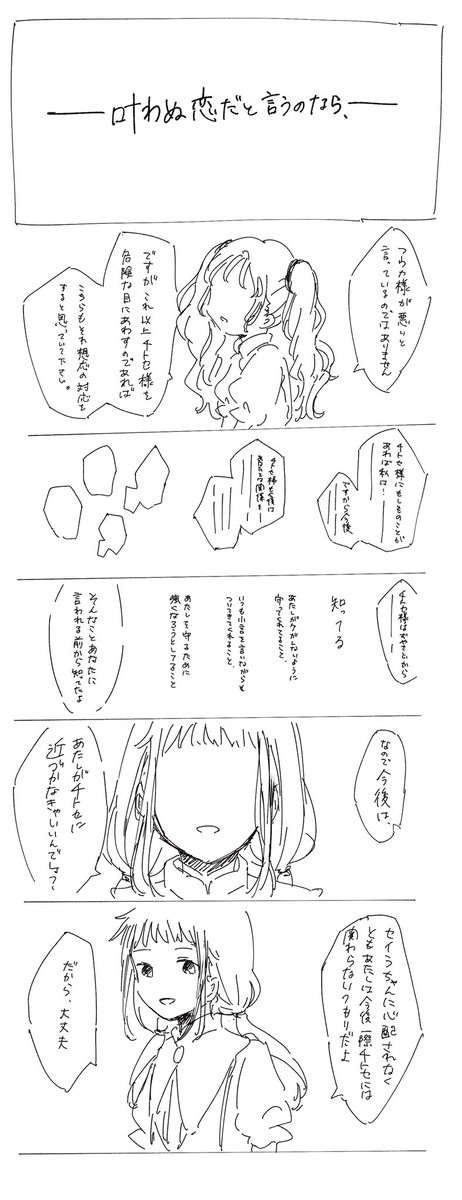 叶わぬ恋だと言うのなら、
つららン様が悪いと
言っているのではありません
ですがこれ以上チトセ様を
危険な目にあわすのであれば
こちらもそれ相応の対応を
すると思っていて下さい。
チトセ様にもしものことが
あれば私は!
ですから今後
チトセ様は
知ってる
あたしがケガしないように
守ってくれてること、
いつも小言を言いながらも
ついてきてくれること、
あたしを守るために
強くなろうとしてること
そんなことあなたに
言われる前から知ってたよ
なので今後は、
あたしがチトセに
近づかなきゃいいんでしょ?
セイラちゃんに心配されなく
ともあたしは今後一際チトセには
関わらないつもりだよ
だから、大丈夫